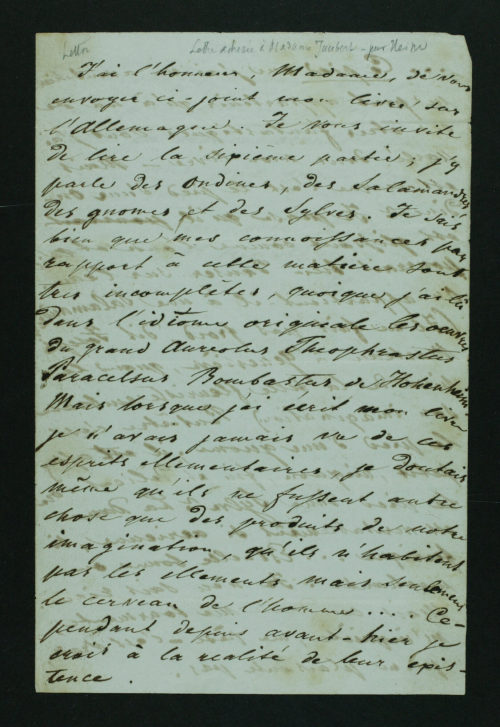 Lettre
Lettre adressée à Madame Jaubert - par Heine
J'ai l'honneur Madame, de vous
envoyer ci-joint mon livre sur
l'Allemagne. Je vous invite
de lire la sixième partie; j'y
parle des ondines, des Salamandres,
des gnomes et des Sylves. Je sais
bien que mes connoissances par
rapport à cette matiere sont
très incomplètes, quoique j'ai lu
dans l'idiome originale les oeuvres
du grand Aureolus Theophrastus
Paracelsus Bombastus de Hohenheim.
Mais lorsque j'ai écrit mon livre
je n'avais jamais vu de ces
esprits ellementaires, je doutais
même qu'ils ne fussent autre
chose que des produits de notre
imagination, qu'ils n'habitent
pas les ellements mais seulement
le cerveau de l'homme.... Ce-
pendant depuis avant-hier je
crois à la realité de leur exis-
tence.